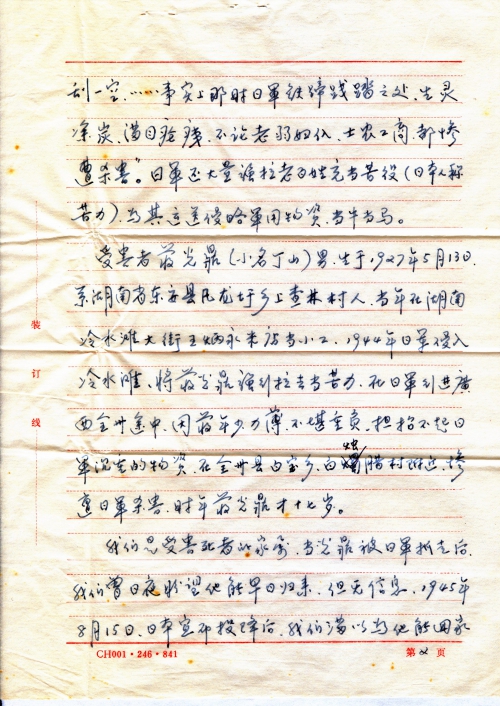 刮一空……事实上那时日军铁蹄践踏之处，生灵
涂炭，满目疮痍，不论老弱妇仆，士农工商，都惨
遭杀害”。日军还大量强拉老百姓充当苦役（日本人称
苦力），为其运送侵略军用物资，当牛当马。
受害者蒋光鼎（小名丁山）男，生于1927年5月13日，
系湖南省东安县 龙圩乡上查林村人，当年在湖南
冷水滩大街王炳永米店当小工，1944年日军侵入
冷水滩，将蒋光鼎强行拉去当苦力，在日军到进广
西全州途中，因蒋年少力薄，不堪重负，担抬不起日
军沉重的物资，在全州县白宝乡，白烛腊村附近，惨
遭日军杀害，时年蒋光鼎才十七岁。
我们是受害死者的家属，当光鼎被日军抓走后，
我们曾日夜盼望他能早日归来，但无信息，1945年
8月15日，日本宣布投降后，我们满以为他能回家
装
订
线
CH001·246·841
第2页